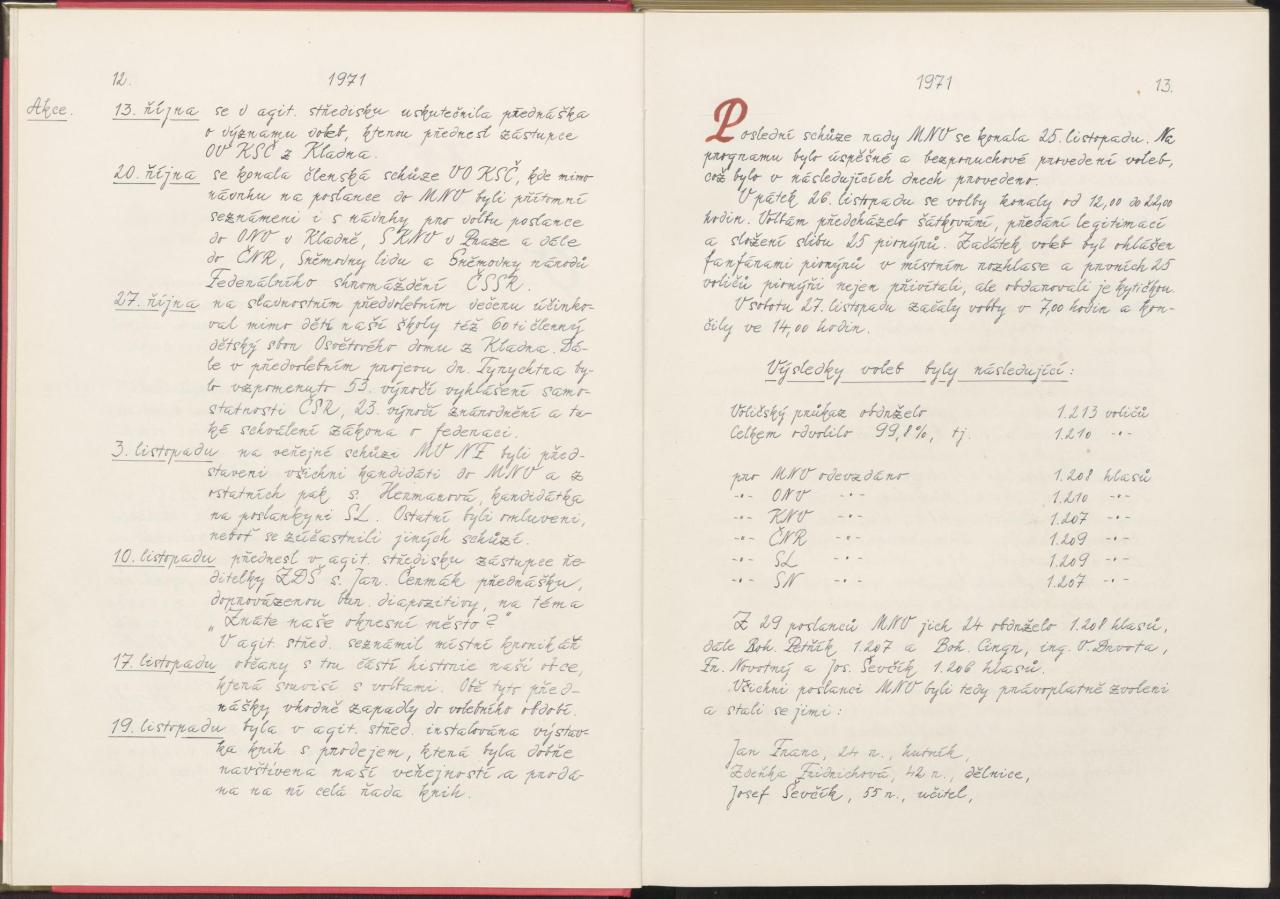 12.
1971
Akce.
13. října se v agit. středisku uskutečnila přednáška
o významu voleb, kterou přednesl zástupce
OV KSČ z Kladna.
20. října se konala členská schůze VO KSČ, kde mimo
návrhu na poslance do MNV byli přítomní
seznámeni i s návrhy pro volbu poslance
do ONV v Kladně, SKNV v Praze a dále
do ČNR, Sněmovny lidu a Sněmovny národů
Federálního shromáždění ČSSR.
27. října na slavnostním předvolebním večeru účinko-
val mimo dětí naší školy též 60ti členný
dětský sbor Osvětového domu z Kladna. Dá-
le v předvolebním projevu dr. Tyrychtra by-
lo vzpomenuto 53. výročí vyhlášení samo-
statnosti ČSR, 23. výročí znárodnění a ta-
ké schválení zákona o federaci.
3. listopadu na veřejné schůzi MV NF byli před-
staveni všichni kandidáti do MNV a z
ostatních pak s. Hermanová, kandidátka
na poslankyni SL. Ostatní byli omluveni,
neboť se zúčastnili jiných schůzí.
10. listopadu přednesl v agit. středisku zástupce ře-
ditelky ZDŠ s. Jar. Čermák přednášku,
doprovázenou bar. diapozitivy, na téma
„Znáte naše okresní město?"
V agit. střed. seznámil místní kronikář
17. listopadu občany s tou částí historie naší obce,
která souvisí s volbami. Obě tyto před-
nášky vhodně zapadly do volebního období.
19. listopadu byla v agit. střed. instalována výstav-
ka knih s prodejem, která byla dobře
navštívena naší veřejností a prodá-
na na ní celá řada knih.
1971
13.
Poslední schůze rady MNV se konala 25. listopadu. Na
programu bylo úspěšné a bezporuchové provedení voleb,
což bylo v následujících dnech provedeno.
V pátek 26. listopadu se volby konaly od 12,00 do 22,00
hodin. Volbám předcházelo šátkování, předání legitimací
a složení slibu 25 pionýrů. Začátek voleb byl ohlášen
fanfárami pionýrů v místním rozhlase a prvních 25
voličů pionýři nejen přivítali, ale obdarovali je kytičkou.
V sobotu 27. listopadu začaly volby v 7,00 hodin a kon-
čily ve 14,00 hodin.
Výsledky voleb byly následující:
Voličský průkaz obdrželo 1.213 voličů
Celkem odvolilo 99,8%, tj. 1.210 -"-
pro MNV odevzdáno 1.208 hlasů
-"- ONV -"- 1.210 -"-
-"- KNV -"- 1.207 -"-
-"- ČNR -"- 1.209 -"-
-"- SL -"- 1.209 -"-
-"- SN -"- 1.207 -"-
Z 29 poslanců MNV jich 24 obdrželo 1.208 hlasů,
dále Boh. Petřík 1.207 a Boh. Cingr, ing. V. Drvota,
Fr. Novotný a Jos. Ševčík 1.206 hlasů.
Všichni poslanci MNV byli tedy právoplatně zvoleni
a stali se jimi:
Jan Franc, 24 r., hutník,
Zdeňka Fridrichová, 42 r., dělnice,
Josef Ševčík, 55 r., učitel,